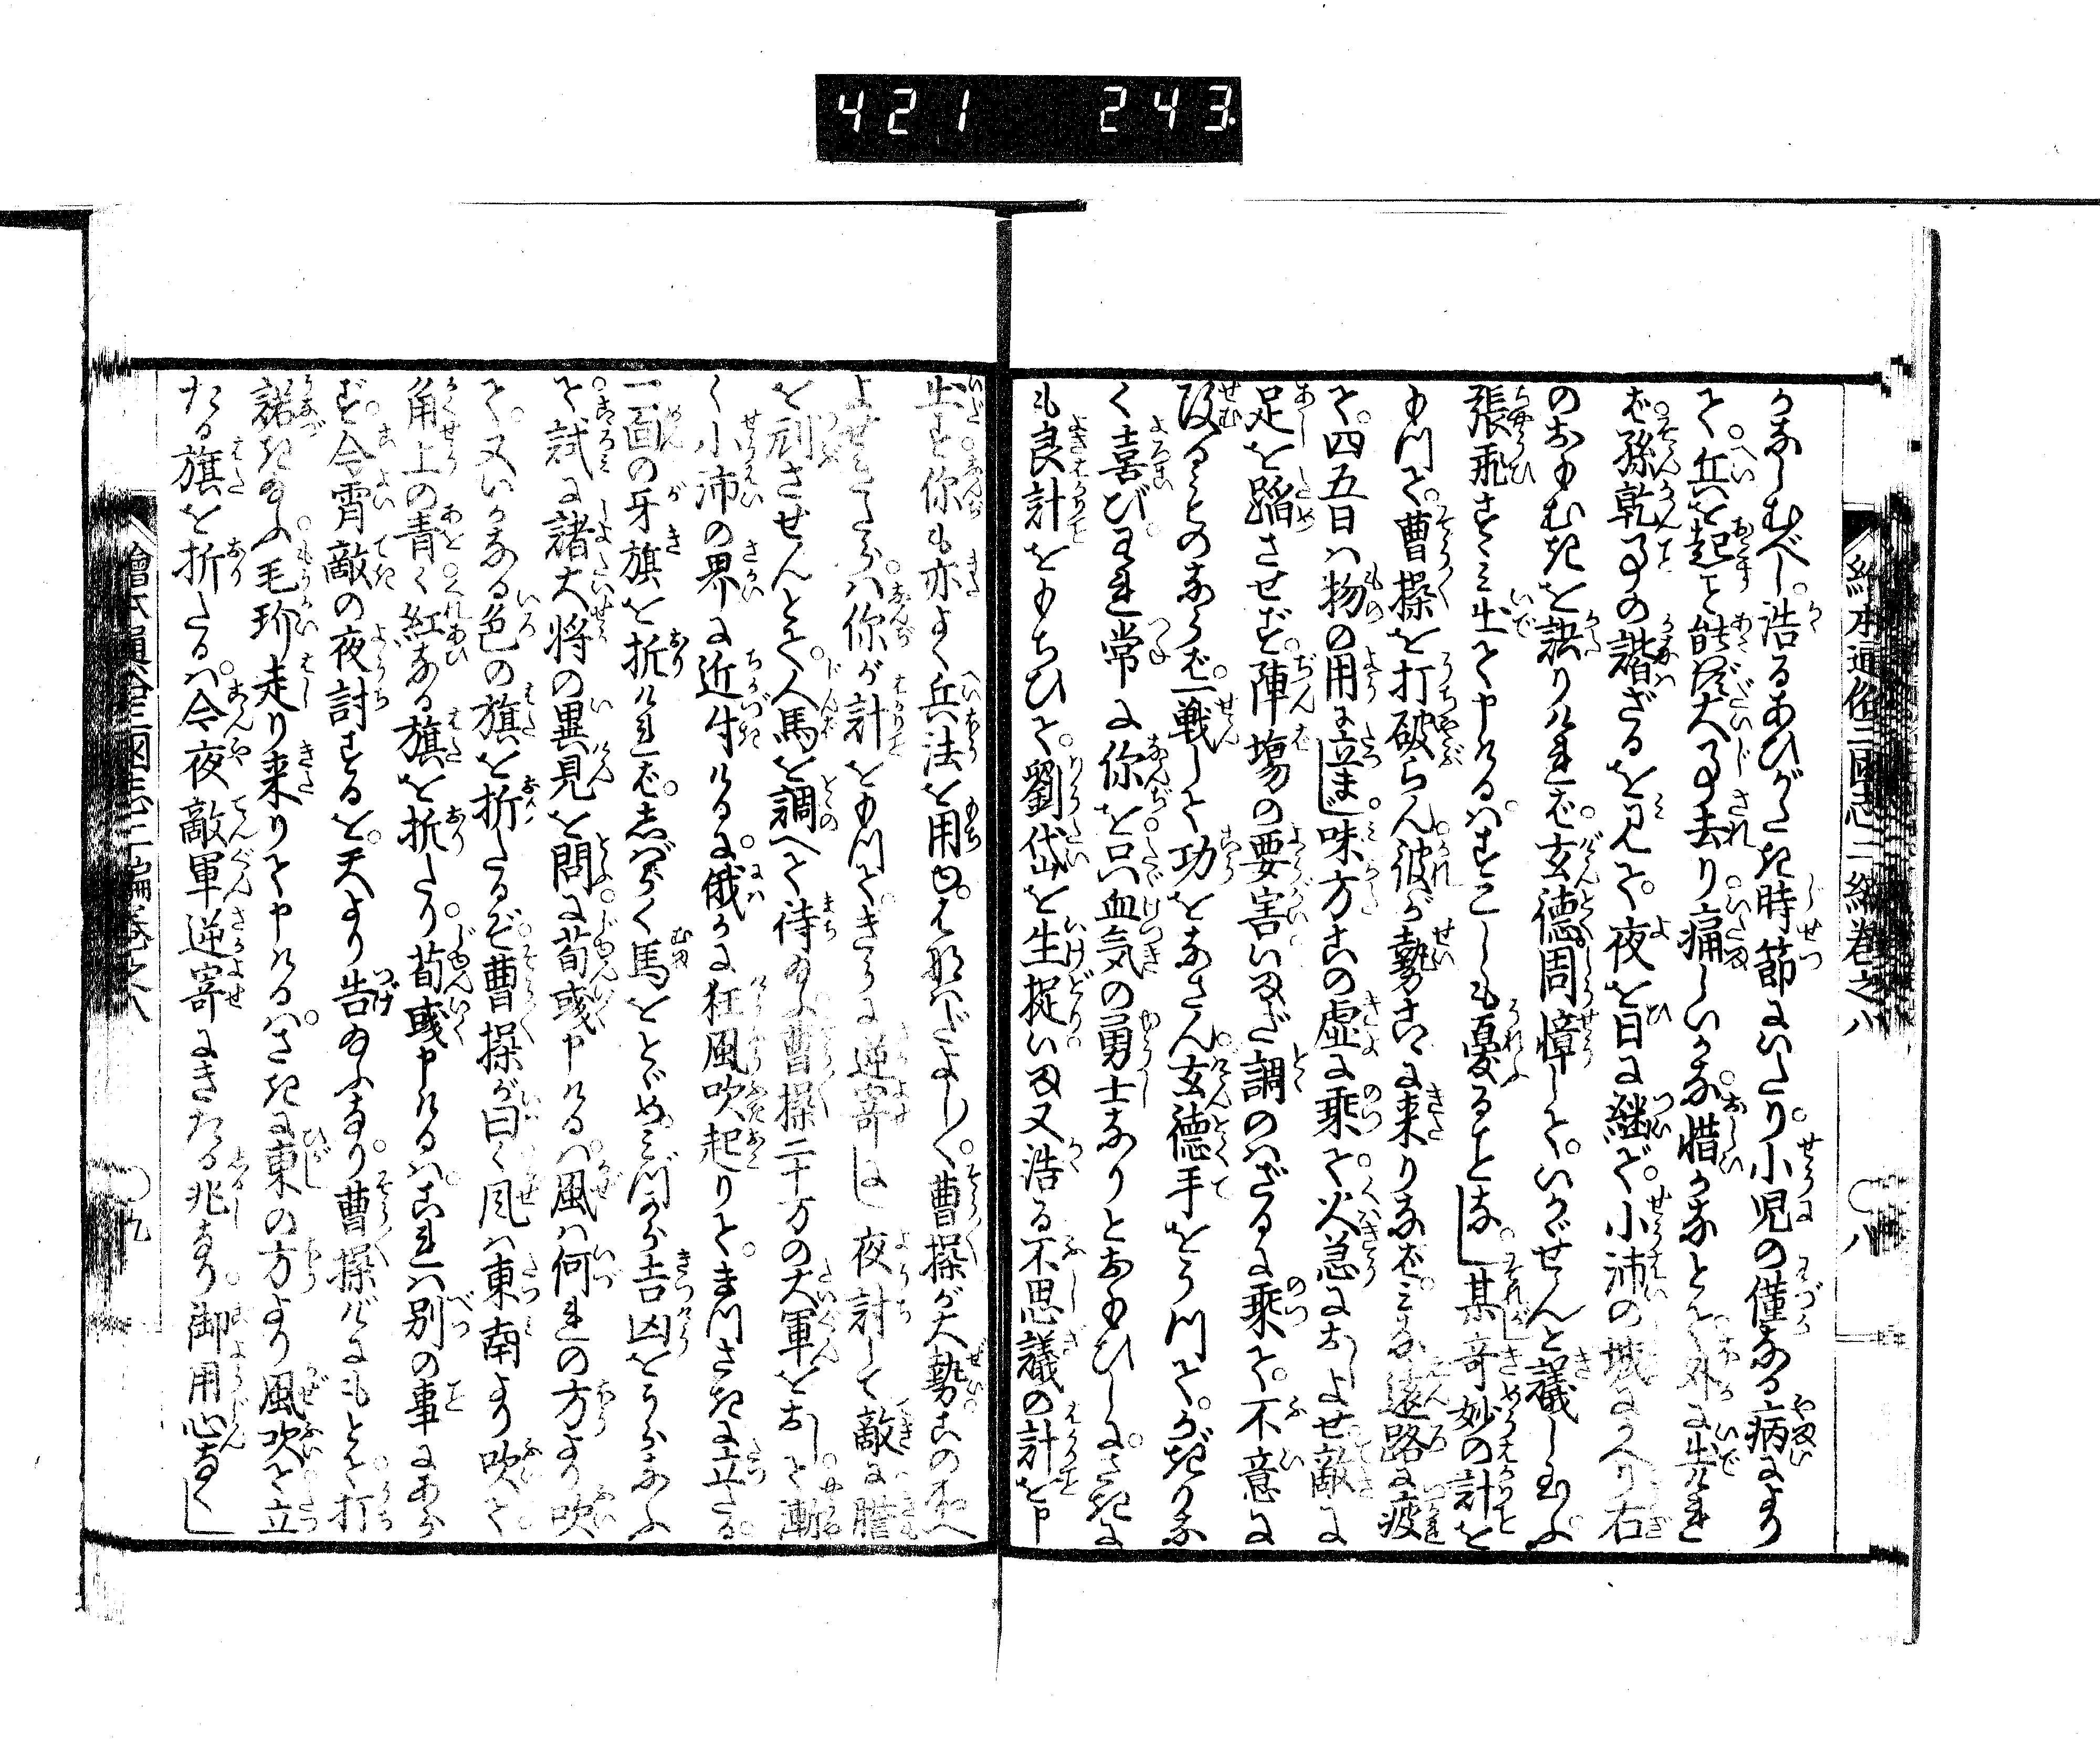 421 243
絵本通俗三國志二編巻之八 〇八
うなしむべし。浩るあひがたき時節にいたり。小児の僅なる病により
て。兵を起さず能ぞ大事去り痛しいかな。惜かなとて外に出ければ
ば。孫乾事の諧ざるを見て。夜を日に継で。小沛の城にかへり右
のおもむきを語りければ。玄徳周章して。いかゞせんと議し玉ふ。
張飛すゝみ出て申けるはすこしも憂ることなし某奇妙の計を
もつて。曹操を打破らん。彼が勢こゝに来りなば。みな遠路に疲
て。四五日は物の用に立まじ味方この虚に乗て。火急におしよせ敵に
足を蹈させず。陣場の要害いまだ調のはざるに乗て。不意に
攻るものならば。一戦して功をなさん。玄徳手をうつて。かぎりな
く喜び。われ常に你を只血気の勇士なりとおもひしに。さきに
も良計をもちひて。劉岱を生捉いま又浩る不思議の計を申
出す。你も亦よく兵法を用ゆ。はなはだよし〳〵。曹操が大勢このへ
よせきたらば你が計をもつて。きうに逆寄し夜討して敵に膽
を刎させんとて。人馬を調へて待玉ふ曹操二十万の大軍をおして漸
く小沛の界に近付けるに。俄かに狂風吹起りて。まつさきに立たる
一面の牙旗を折ければ。しばらく馬をとゞめ。みづから吉凶をうらなふ
て試に諸大将の異見を問に荀彧申けるは風は何れの方より吹
て。又いかなる色の旗を折たるぞ曹操が曰く風は東南より吹て
角上の青く紅なる旗を折たり。荀彧申けるは。これは別の事にあら
ず。今宵敵の夜討するを。天より告玉ふなり。曹操げにもとて打
諾き玉ふ。毛玠走り来りて申けるは。さきに東の方より風吹て立
たる旗を折たるは。今夜敵軍逆寄にきたる兆なり。御用心あるべし
繪本通俗三國志二編巻之八 〇九